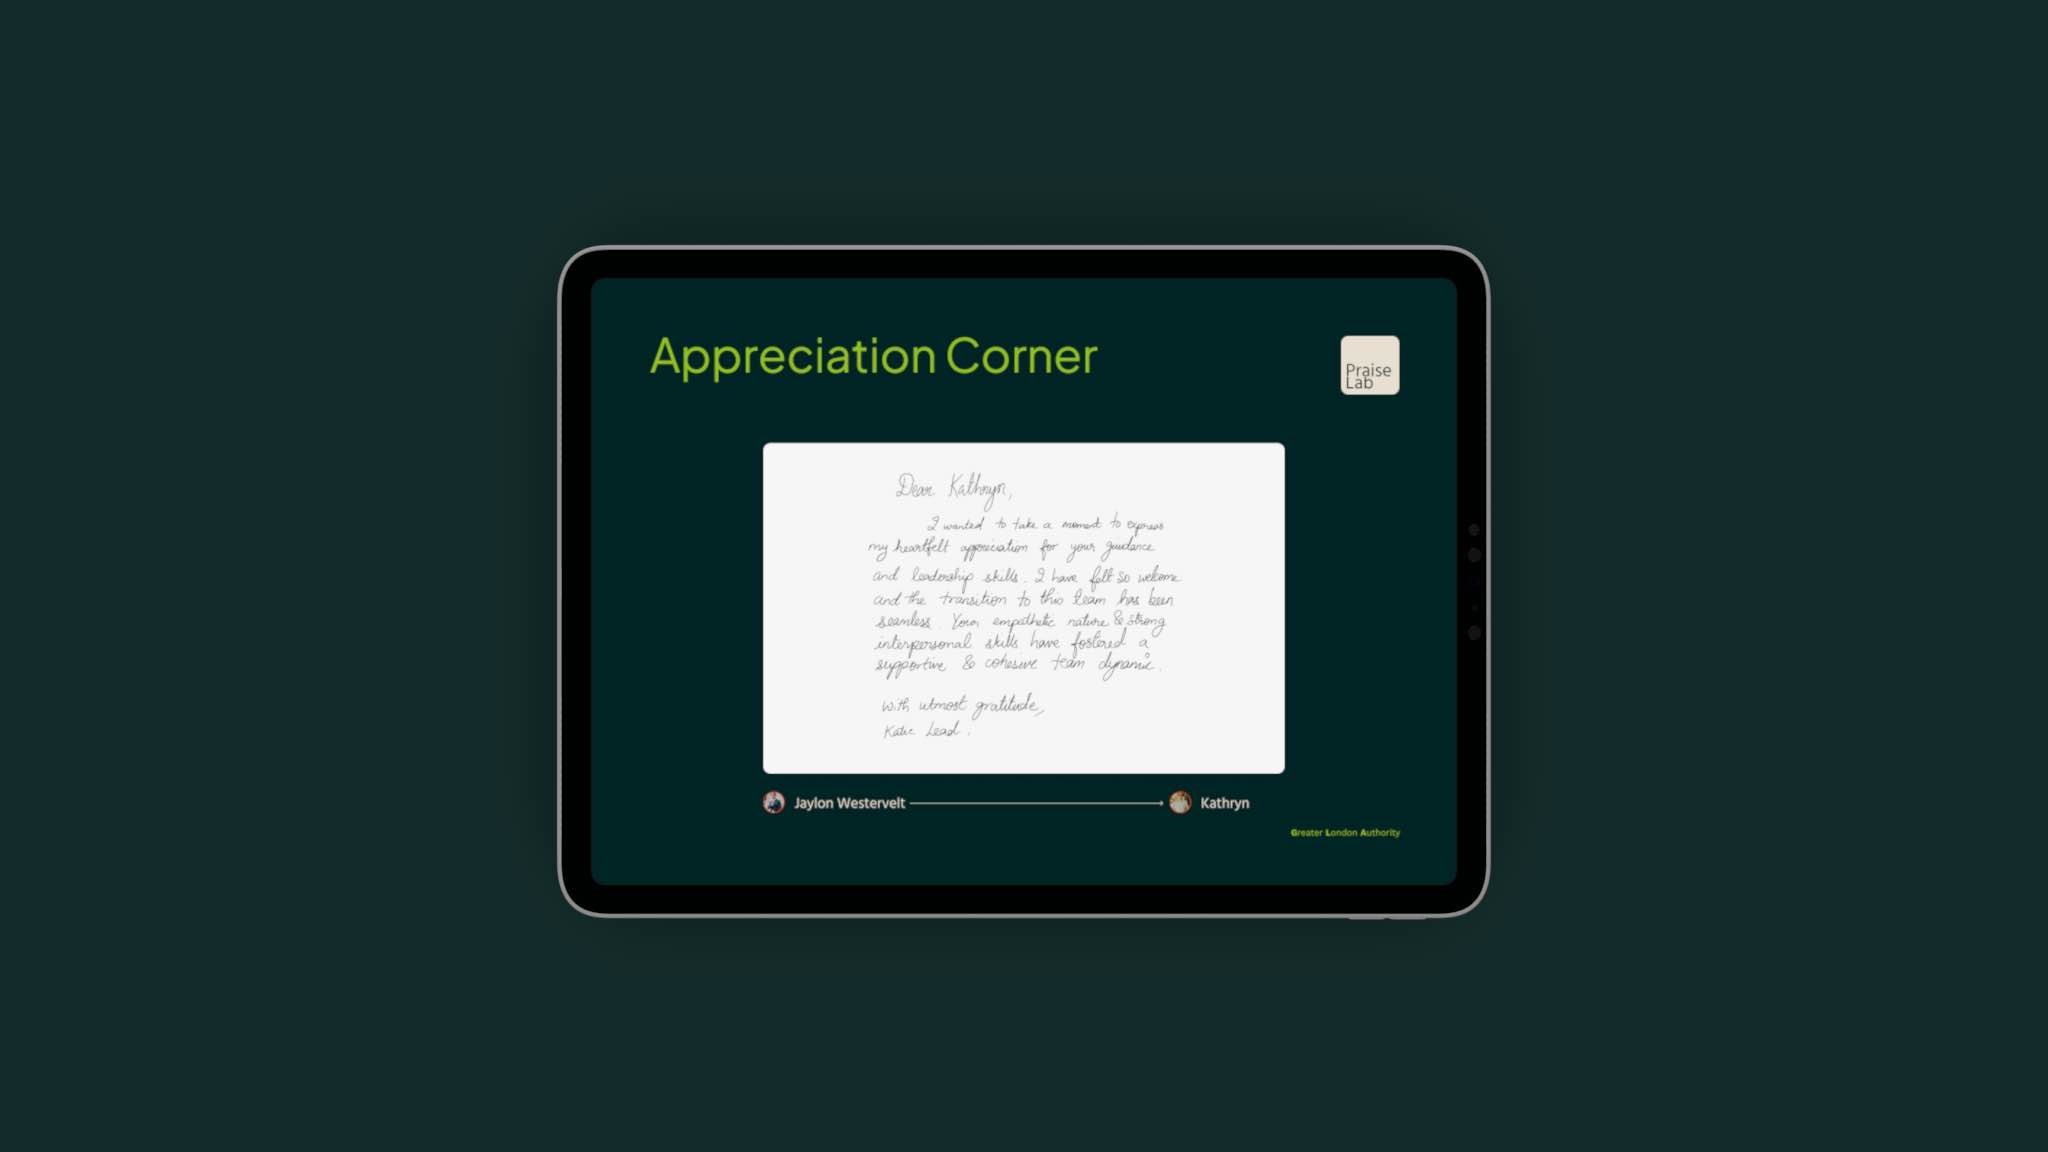 Appreciation Corner
Praise
Lab
Dear Kathryn,
I wanted to take a moment to express
my heartfelt appreciation for your guidance
and leadership skills. I have felt so welcome
and the transition to this team has been
seamless. Your empathetic nature & strong
interpersonal skills have fostered a
supportive & cohesive team dynamic.
With utmost gratitude,
Katie Lead.
Jaylon Westervelt
Kathryn
Greater London Authority